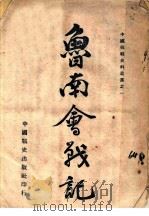 中國抗戰史料叢書之一
魯南會戰記
中國戰史出版社印行